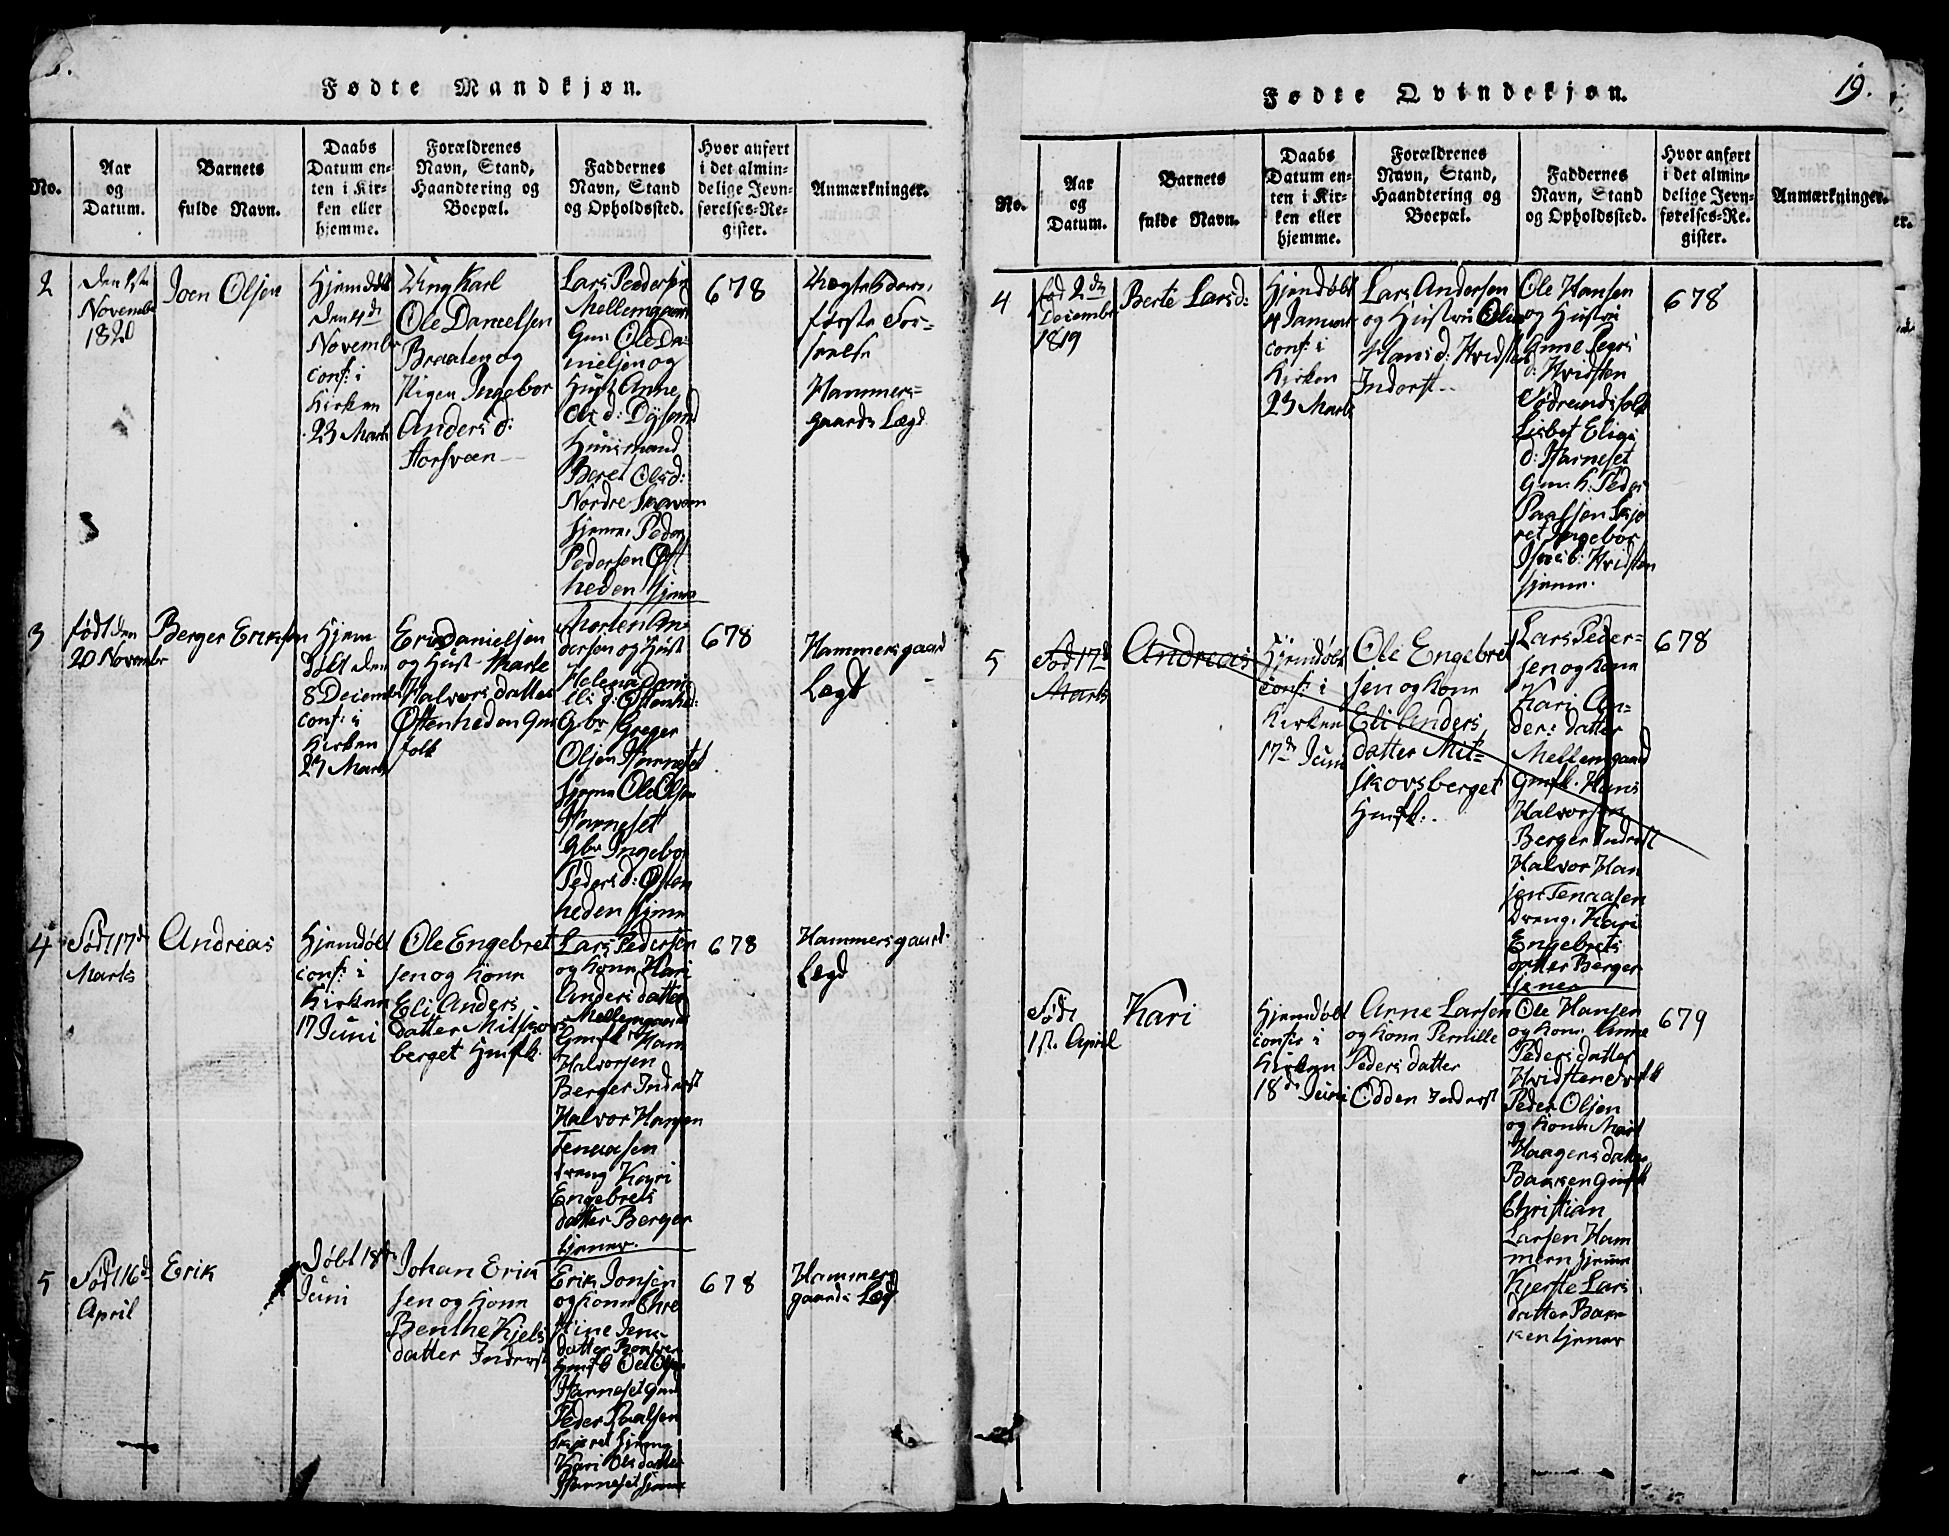 Fødte Mandkjøn.
No.
Aar
og
Datum.
Barnets
fulde Navn.
Daabs
Datum en-
ten i Kir-
ken eller
hjemme.
Forældrenes
Navn, Stand,
Haandtering og
Boepæl.
Faddernes
Navn, Stand
og Opholdssted.
Hvor anført
i det almin-
delige Jevn-
førelses-Re-
gister.
Anmærkninger.
2
November
1820
Joen Olsen
Hjemdøbt
den 4de
Novembr
conf: i
Kirken
23 Marts
Ung Karl
Ole Danielsen
Braaten og
Pigen Ingebor
Anders d:
Lars Pedersen
Mellemgaard
Gm: Ole Da-
nielsen og
Hust Anne
Ols d:
Huusmand
Beret Olsd:
Nordre
tjener Peder
Pedersen Øst
heden tjener
678
første For-
seelse
Hammers-
gaards Lægd
3
født den
20 Novembr
Berger Eriksen
Hjem
døbt den
8 Decemer
conf: i
Kirken
23 Marts
Eric Danielsen
og Hust Marte
Halvors datter
Østenheden Gm
folk
Morten An-
dersen og Hust
Helena Dani-
Gbr Greger
Olsen
tjener Ole Olsen
Gbr Ingebor
Peders d: Østen
heden tjener
678
Hammersgaard
Lægd
4
Født 17de
Marts
Andreas
Hjemdøbt
conf: i
Kirken
17 Juni
Ole Engebret
sen og Kone
Eli Anders
datter Milskovs
berget Hmfk.
Lars Pedersen
og Kone Kari
Anders datter
Mellemgaard
Gmfk Hans
Halvorsen
Berger Inderst
Halvor Hansen
Tenaasen
dreng Kari
Engebrets
datter Berger
tjener.
678
Hammersgaard:
Lægd
5
Født 16de
April
Erik
Døbt 18de
Juni
Johan Erik
sen og Kone
Benthe Kjels
datter Inderst
Erik Jonsen
og Kone Chre
stine Jens
datter
Hmfk Ole Olsen
Peder Paalsen
tjener
Kari Ols datter
678
Hammers
gaards Lægd
Fødte Qvindekjøn.
19.
No.
Aar
og
Datum.
Barnets
fulde Navn.
Daabs
Datum en-
ten i Kir-
ken eller
hjemme.
Forældrenes
Navn, Stand,
Haandtering og
Boepæl.
Faddernes
Navn, Stand
og Opholdssted.
Hvor anført
i det almin-
delige Jevn-
førelses-Re-
gister.
Anmærkninger.
4
fød 2den
Decembr
1819
Berte Larsd:
Hjemdøbt
4 Januar
conf: i
Kirken
23 Marts
Lars Andersen
og Hustru Olia
Hans d: Hvidsten
Inderst
Ole Hansen
og Hustru
Anne Peders
d: Hvidsten
Lisbet
Gm: k: Peder
Paalsen Skjø
ret Ingebor
Hvidsten
tjener.
678
5
Født 17de
Marts
Andreas
Hjemdøbt
conf: i
Kirken
17de Juni
Ole Engebret
sen og Kone
Eli Anders
datter Mil-
skovsberget
Hmfk.
Lars Peder-
sen og Kone
Kari An-
ders datter
Mellemgaard
Gmfk. Hans
Halvorsen
Berger Inderst
Halvor Han
sen Tenaasen
dreng. Kari
Engebrets
datter Berger
tjener
678
Født
1st. April
Kari
Hjemdøbt
conf: i
Kirken
18de Juni
Arne Larsen
og Kone Pernille
Peders datter
Odden Inderst
Ole Hansen
og Kone Anne
Peders datter
Hvidsten
Peder Olsen
og Kone Marit
Haagens datter
Bakken Gmfk
Christian
Larsen Ham
mern tjener
Kjerste Lars
datter Bak
ken tjener
679